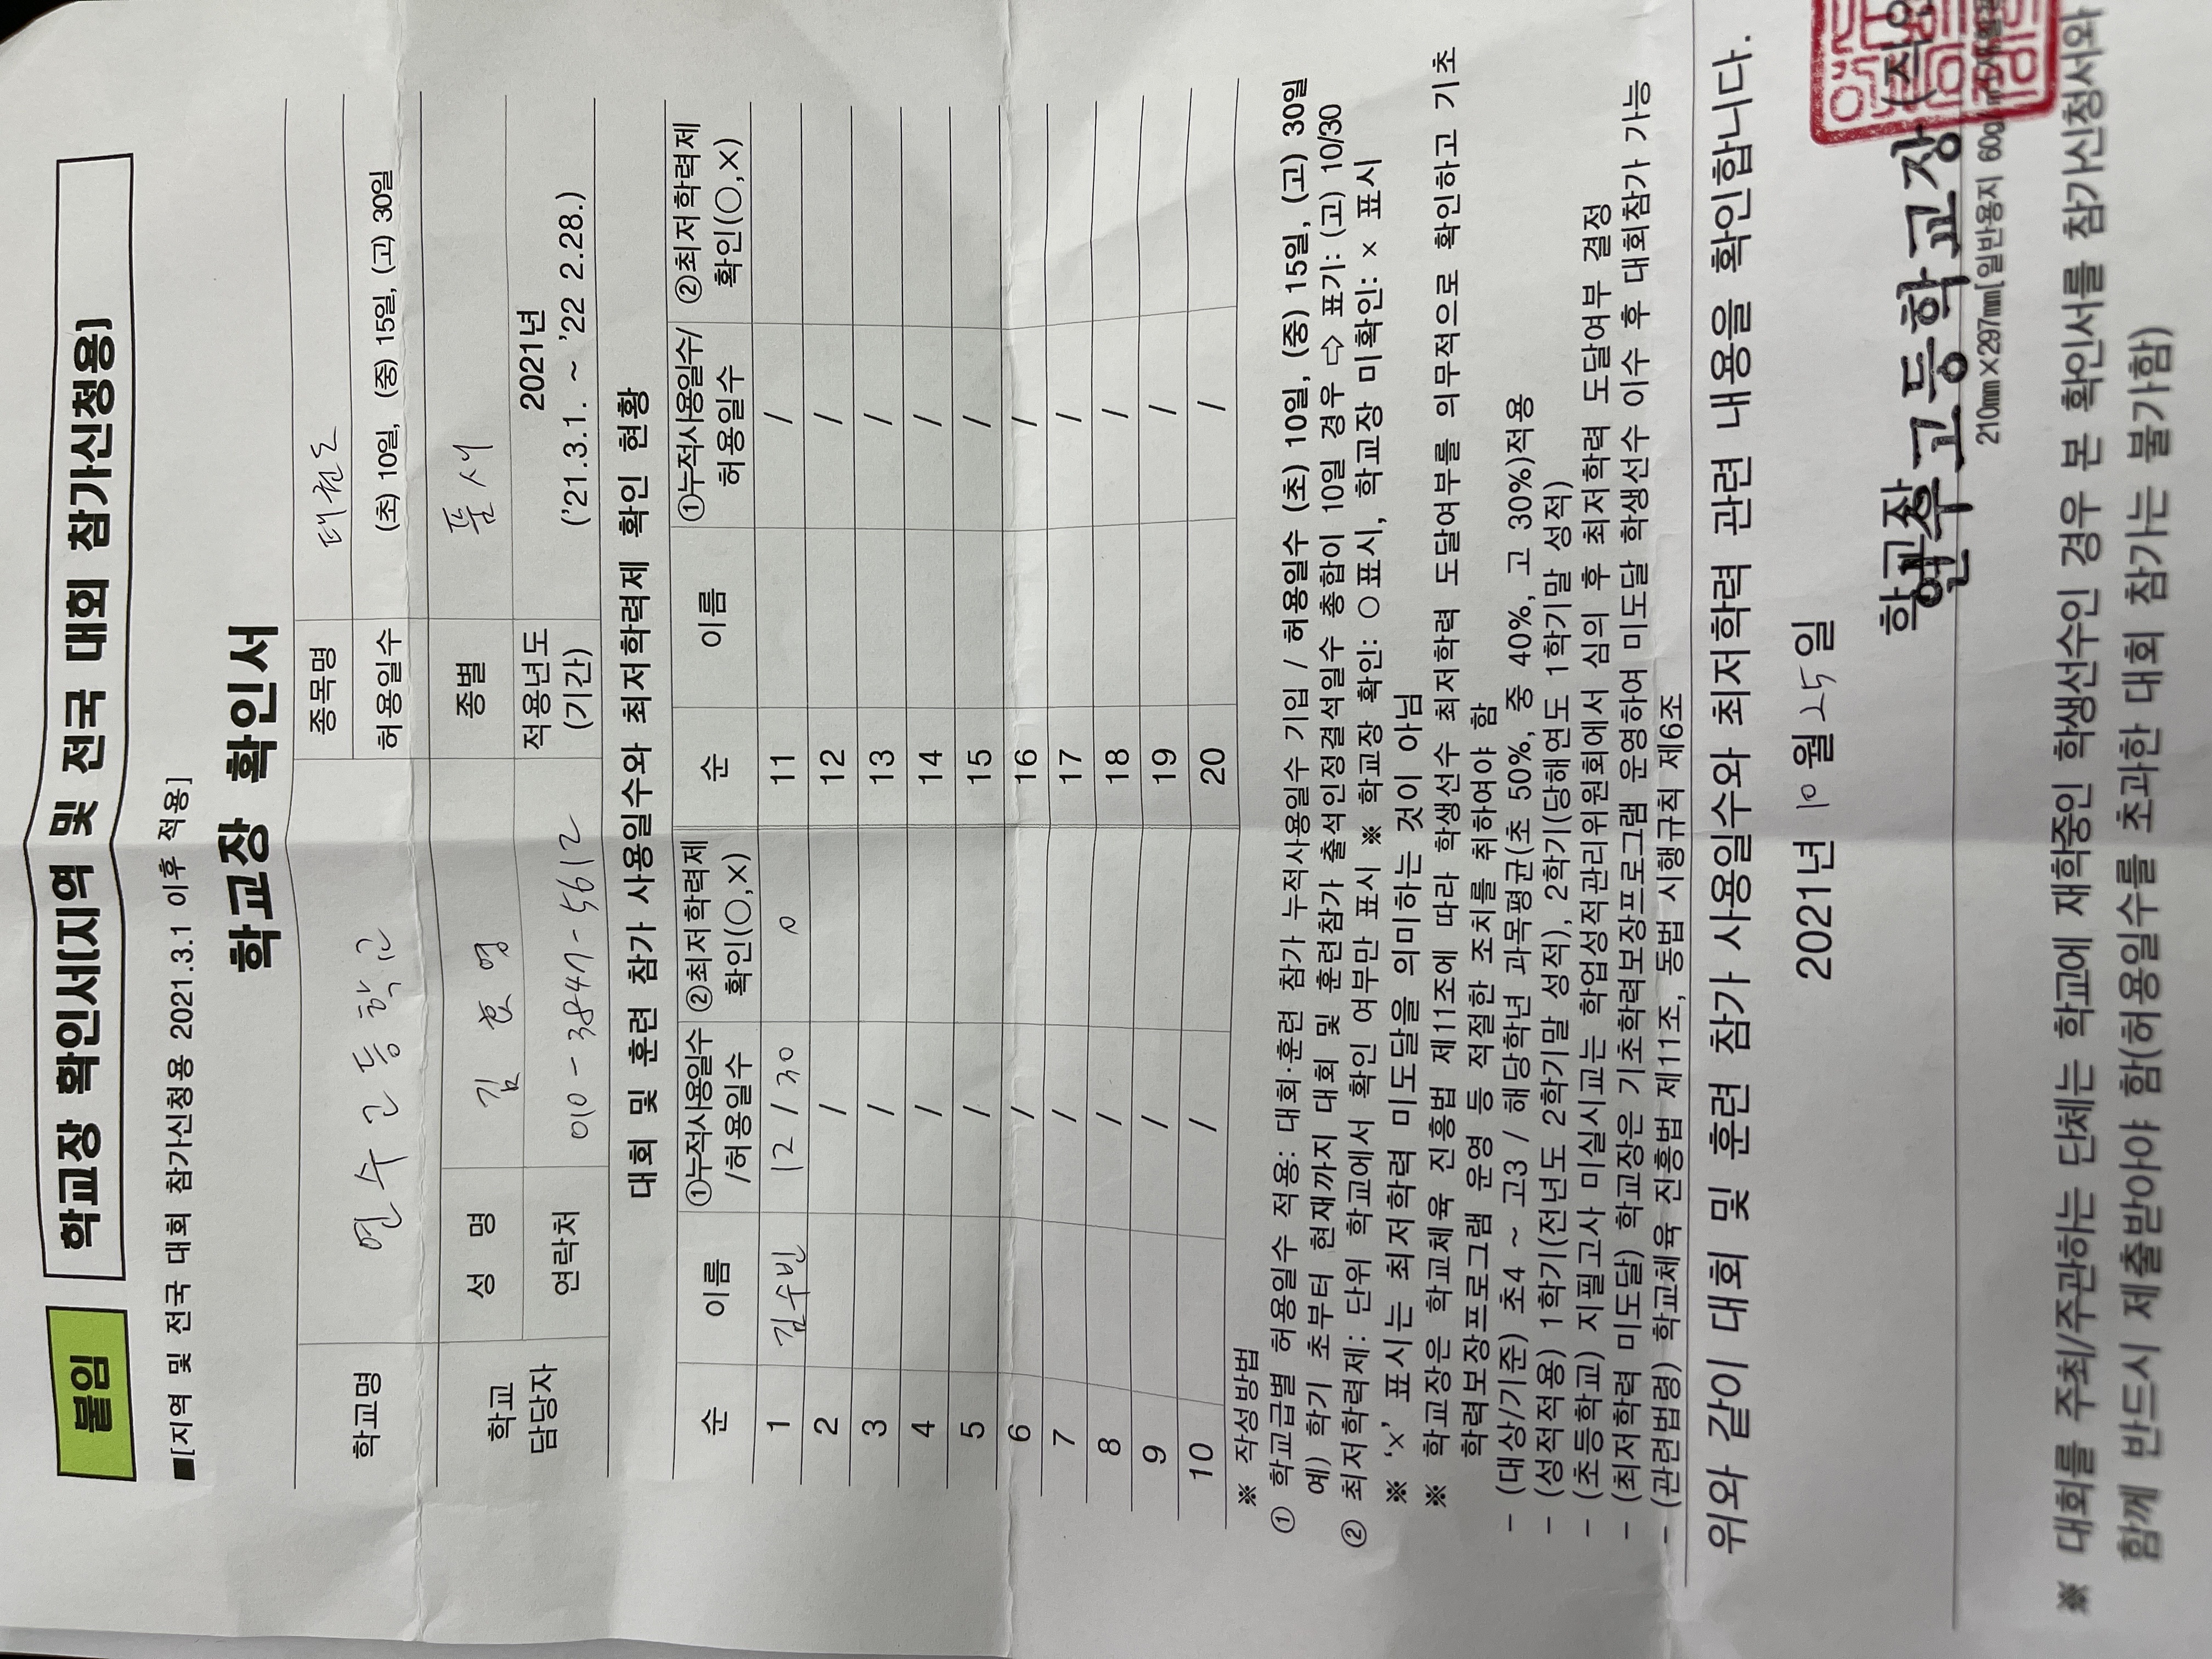 붙임
학교장 확인서(지역 및 전국 대회 참가신청용)
■[지역 및 전국 대회 참가신청용 2021.3.1 이후 적용]
학교장 확인서
학교명 연수고등학교 종목명 태권도
허용일수 (초) 10일, (중) 15일, (고) 30일
학교 담당자 성 명 김효영 종별 품새
연락처 010-3847-5612 적용년도 (기간) 2021년 ('21.3.1. ~ '22 2.28.)
대회 및 훈련 참가 사용일수와 최저학력제 확인 현황
순 이름 ①누적사용일수/허용일수 ②최저학력제 확인(○,×) 순 이름 ①누적사용일수/허용일수 ②최저학력제 확인(○,×)
1 김수빈 12 / 30 ○ 11 /
2 / 12 /
3 / 13 /
4 / 14 /
5 / 15 /
6 / 16 /
7 / 17 /
8 / 18 /
9 / 19 /
10 / 20 /
※ 작성방법
① 학교급별 허용일수 적용: 대회·훈련 참가 누적사용일수 기입 / 허용일수 (초) 10일, (중) 15일, (고) 30일
예) 학기 초부터 현재까지 대회 및 훈련참가 출석인정결석일수 총합이 10일 경우 ⇨ 표기: (고) 10/30
② 최저학력제: 단위 학교에서 확인 여부만 표시 ※ 학교장 확인: ○표시, 학교장 미확인: × 표시
※ '×' 표시는 최저학력 미도달을 의미하는 것이 아님
※ 학교장은 학교체육 진흥법 제11조에 따라 학생선수 최저학력 도달여부를 의무적으로 확인하고 기초
학력보장프로그램 운영 등 적절한 조치를 취하여야 함
- (대상/기준) 초4 ~ 고3 / 해당학년 과목평균(초 50%, 중 40%, 고 30%)적용
- (성적적용) 1학기(전년도 2학기말 성적), 2학기(당해연도 1학기말 성적)
- (초등학교) 지필고사 미실시교는 학업성적관리위원회에서 심의 후 최저학력 도달여부 결정
- (최저학력 미도달) 학교장은 기초학력보장프로그램 운영하여 미도달 학생선수 이수 후 대회참가 가능
- (관련법령) 학교체육 진흥법 제11조, 동법 시행규칙 제6조
위와 같이 대회 및 훈련 참가 사용일수와 최저학력 관련 내용을 확인합니다.
2021년 10월 25일
학교장 연수고등학교장 (직인
210mm×297mm[일반용지 60g/
※ 대회를 주최/주관하는 단체는 학교에 재학중인 학생선수인 경우 본 확인서를 참가신청서와
함께 반드시 제출받아야 함(허용일수를 초과한 대회 참가는 불가함)